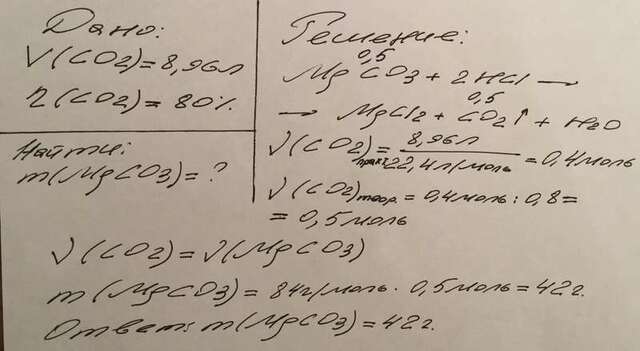 Дано:
V(CO2)=8,96л
η(CO2)=80%.
Найти:
m(MgCO3)=?
Решение:
0,5
MgCO3 + 2HCl →
0,5
→ MgCl2 + CO2↑ + H2O
ν(CO2)практ.= 8,96л / 22,4л/моль = 0,4моль
ν(CO2)теор. = 0,4моль : 0,8 =
= 0,5моль
ν(CO2) = ν(MgCO3)
m(MgCO3) = 84г/моль · 0,5моль = 42г.
Ответ: m(MgCO3) = 42г.